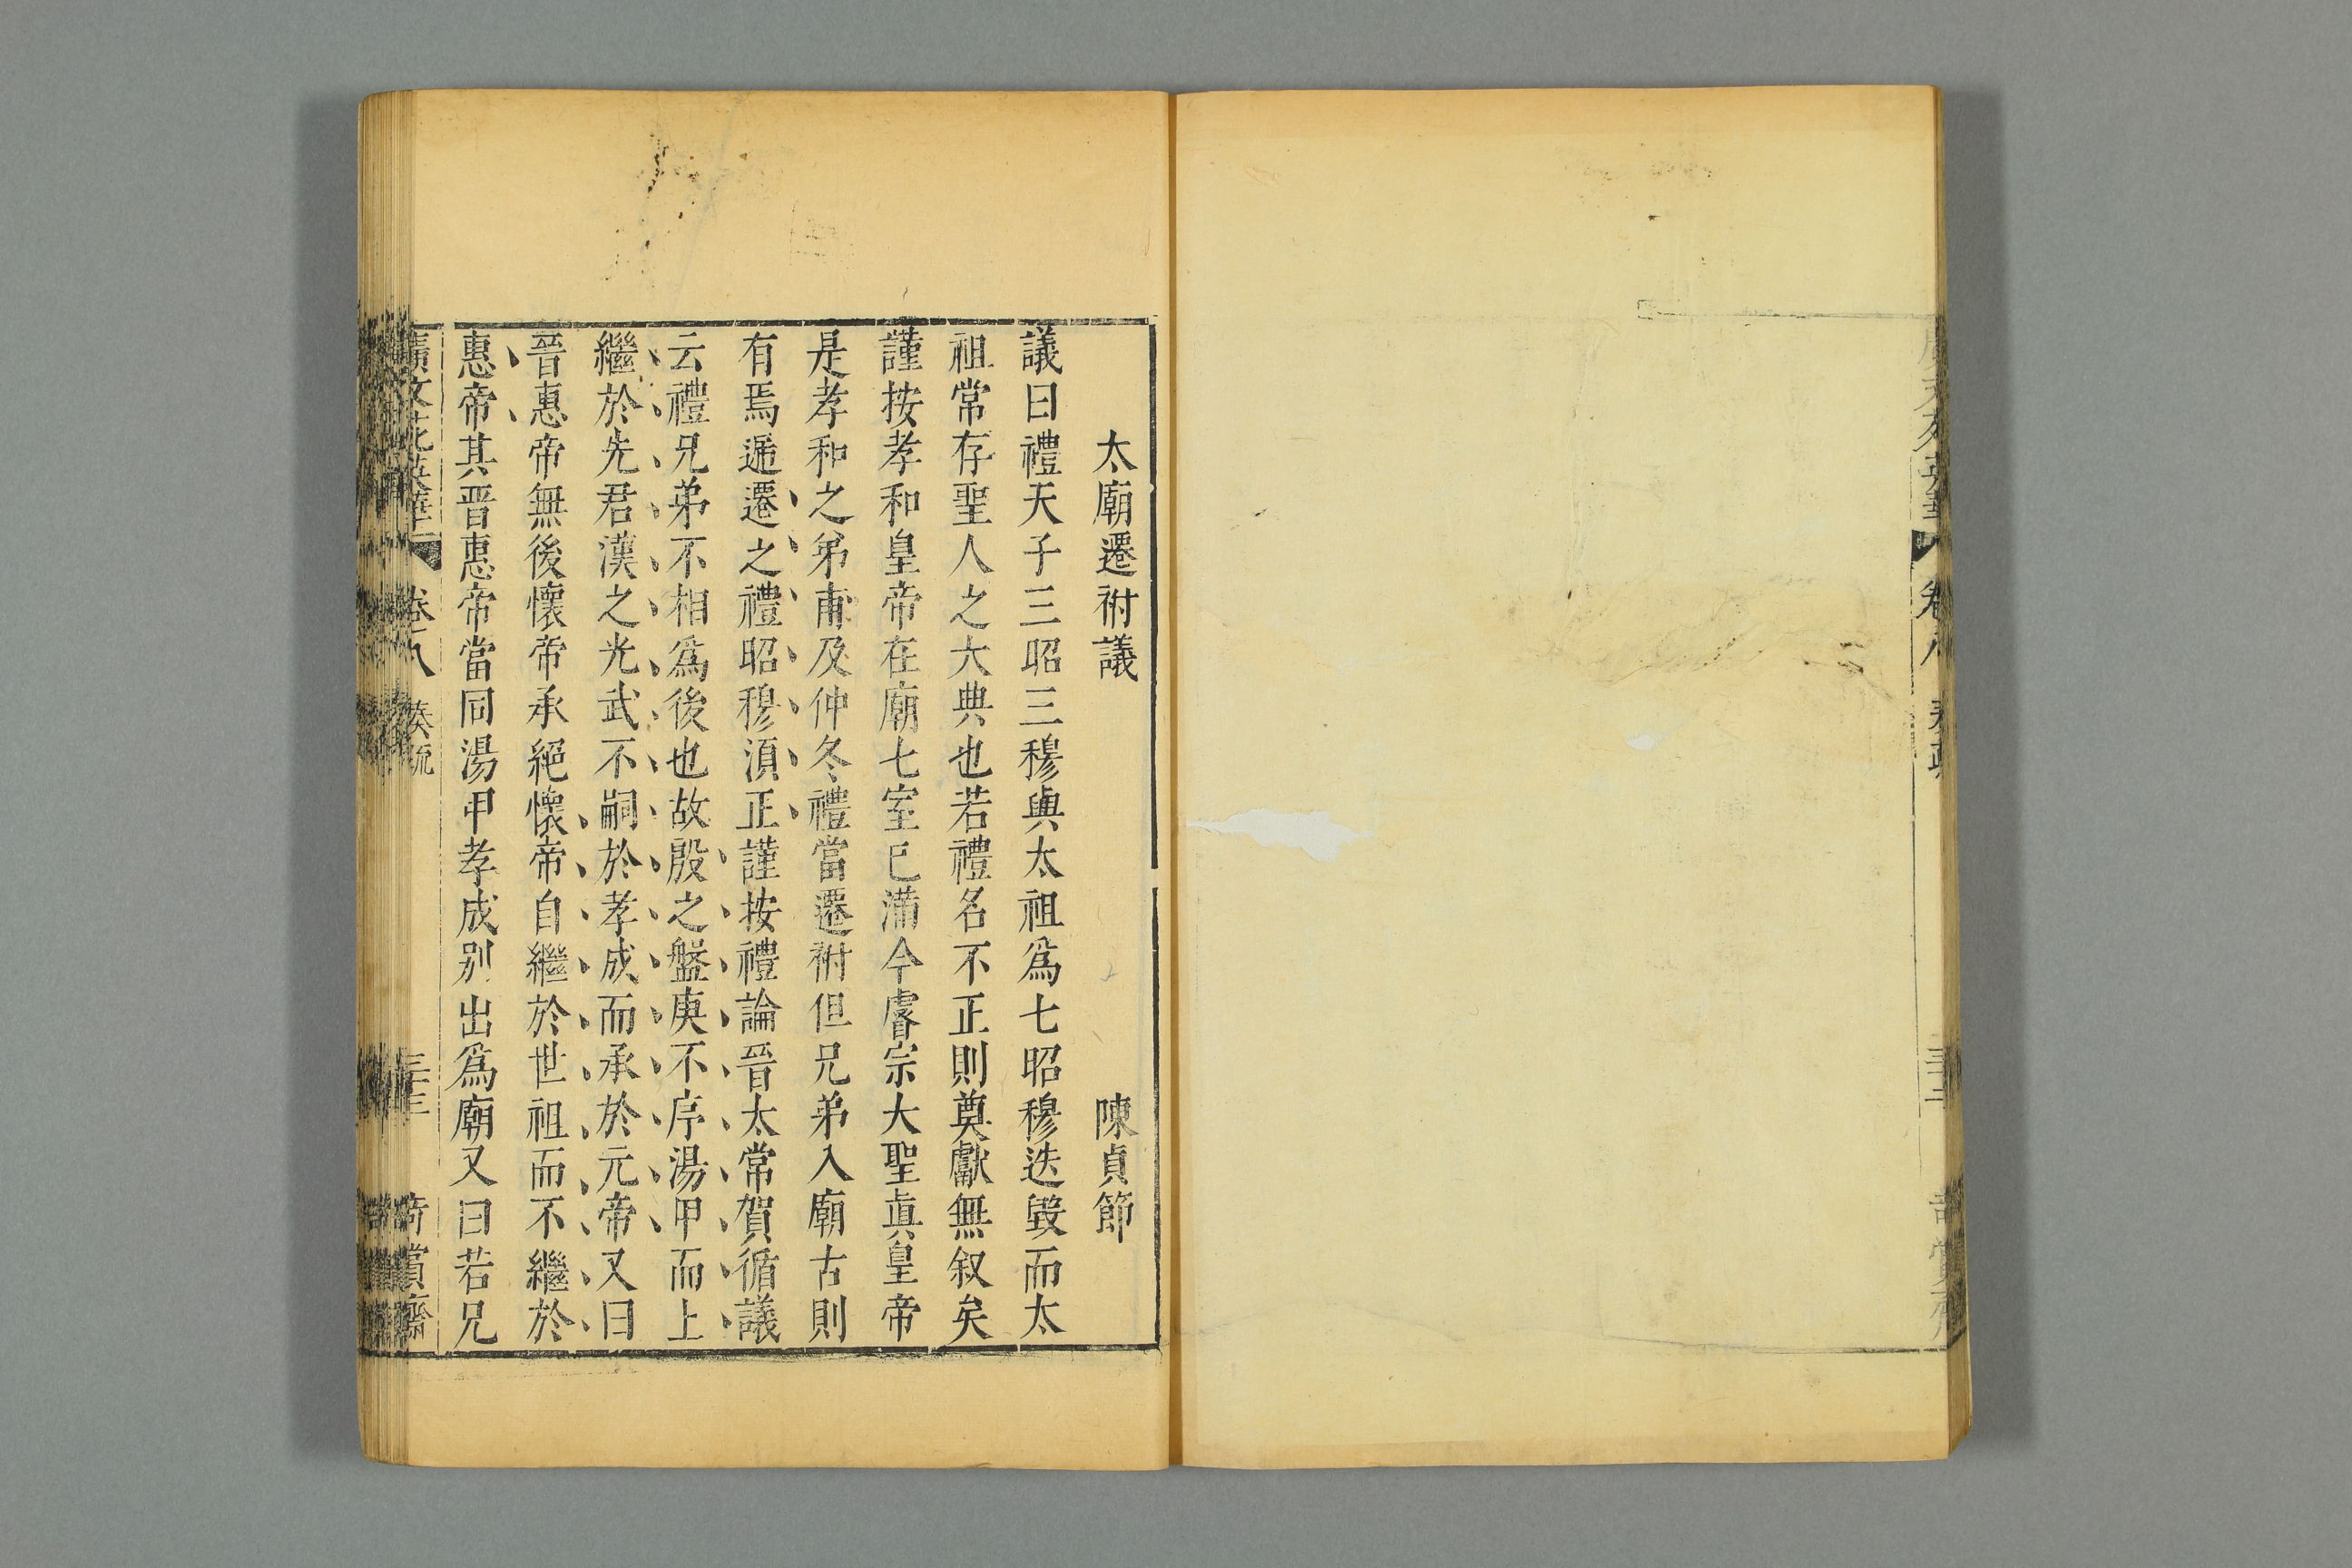 太廟遷祔議　陳貞節
議曰禮天子三昭三穆與太祖爲七昭穆迭毀而太
祖常存聖人之大典也若禮名不正則奠獻無叙矣
謹按孝和皇帝在廟七室已滿今睿宗大聖眞皇帝
是孝和之弟甫及仲冬禮當遷祔但兄弟入廟古則
有焉遞遷之禮昭穆湏正謹按禮論晉太常賀循議
云禮兄弟不相爲後也故殷之盤庚不序湯甲而上
繼於先君漢之光武不嗣於孝成而承於元帝又曰
晉惠帝無後懷帝承絕懷帝自繼於世祖而不繼於
惠帝其晋惠帝當同湯甲孝成别出爲廟又曰若兄
廣文苑英華
卷八
奏疏
三十三
奇賞齋